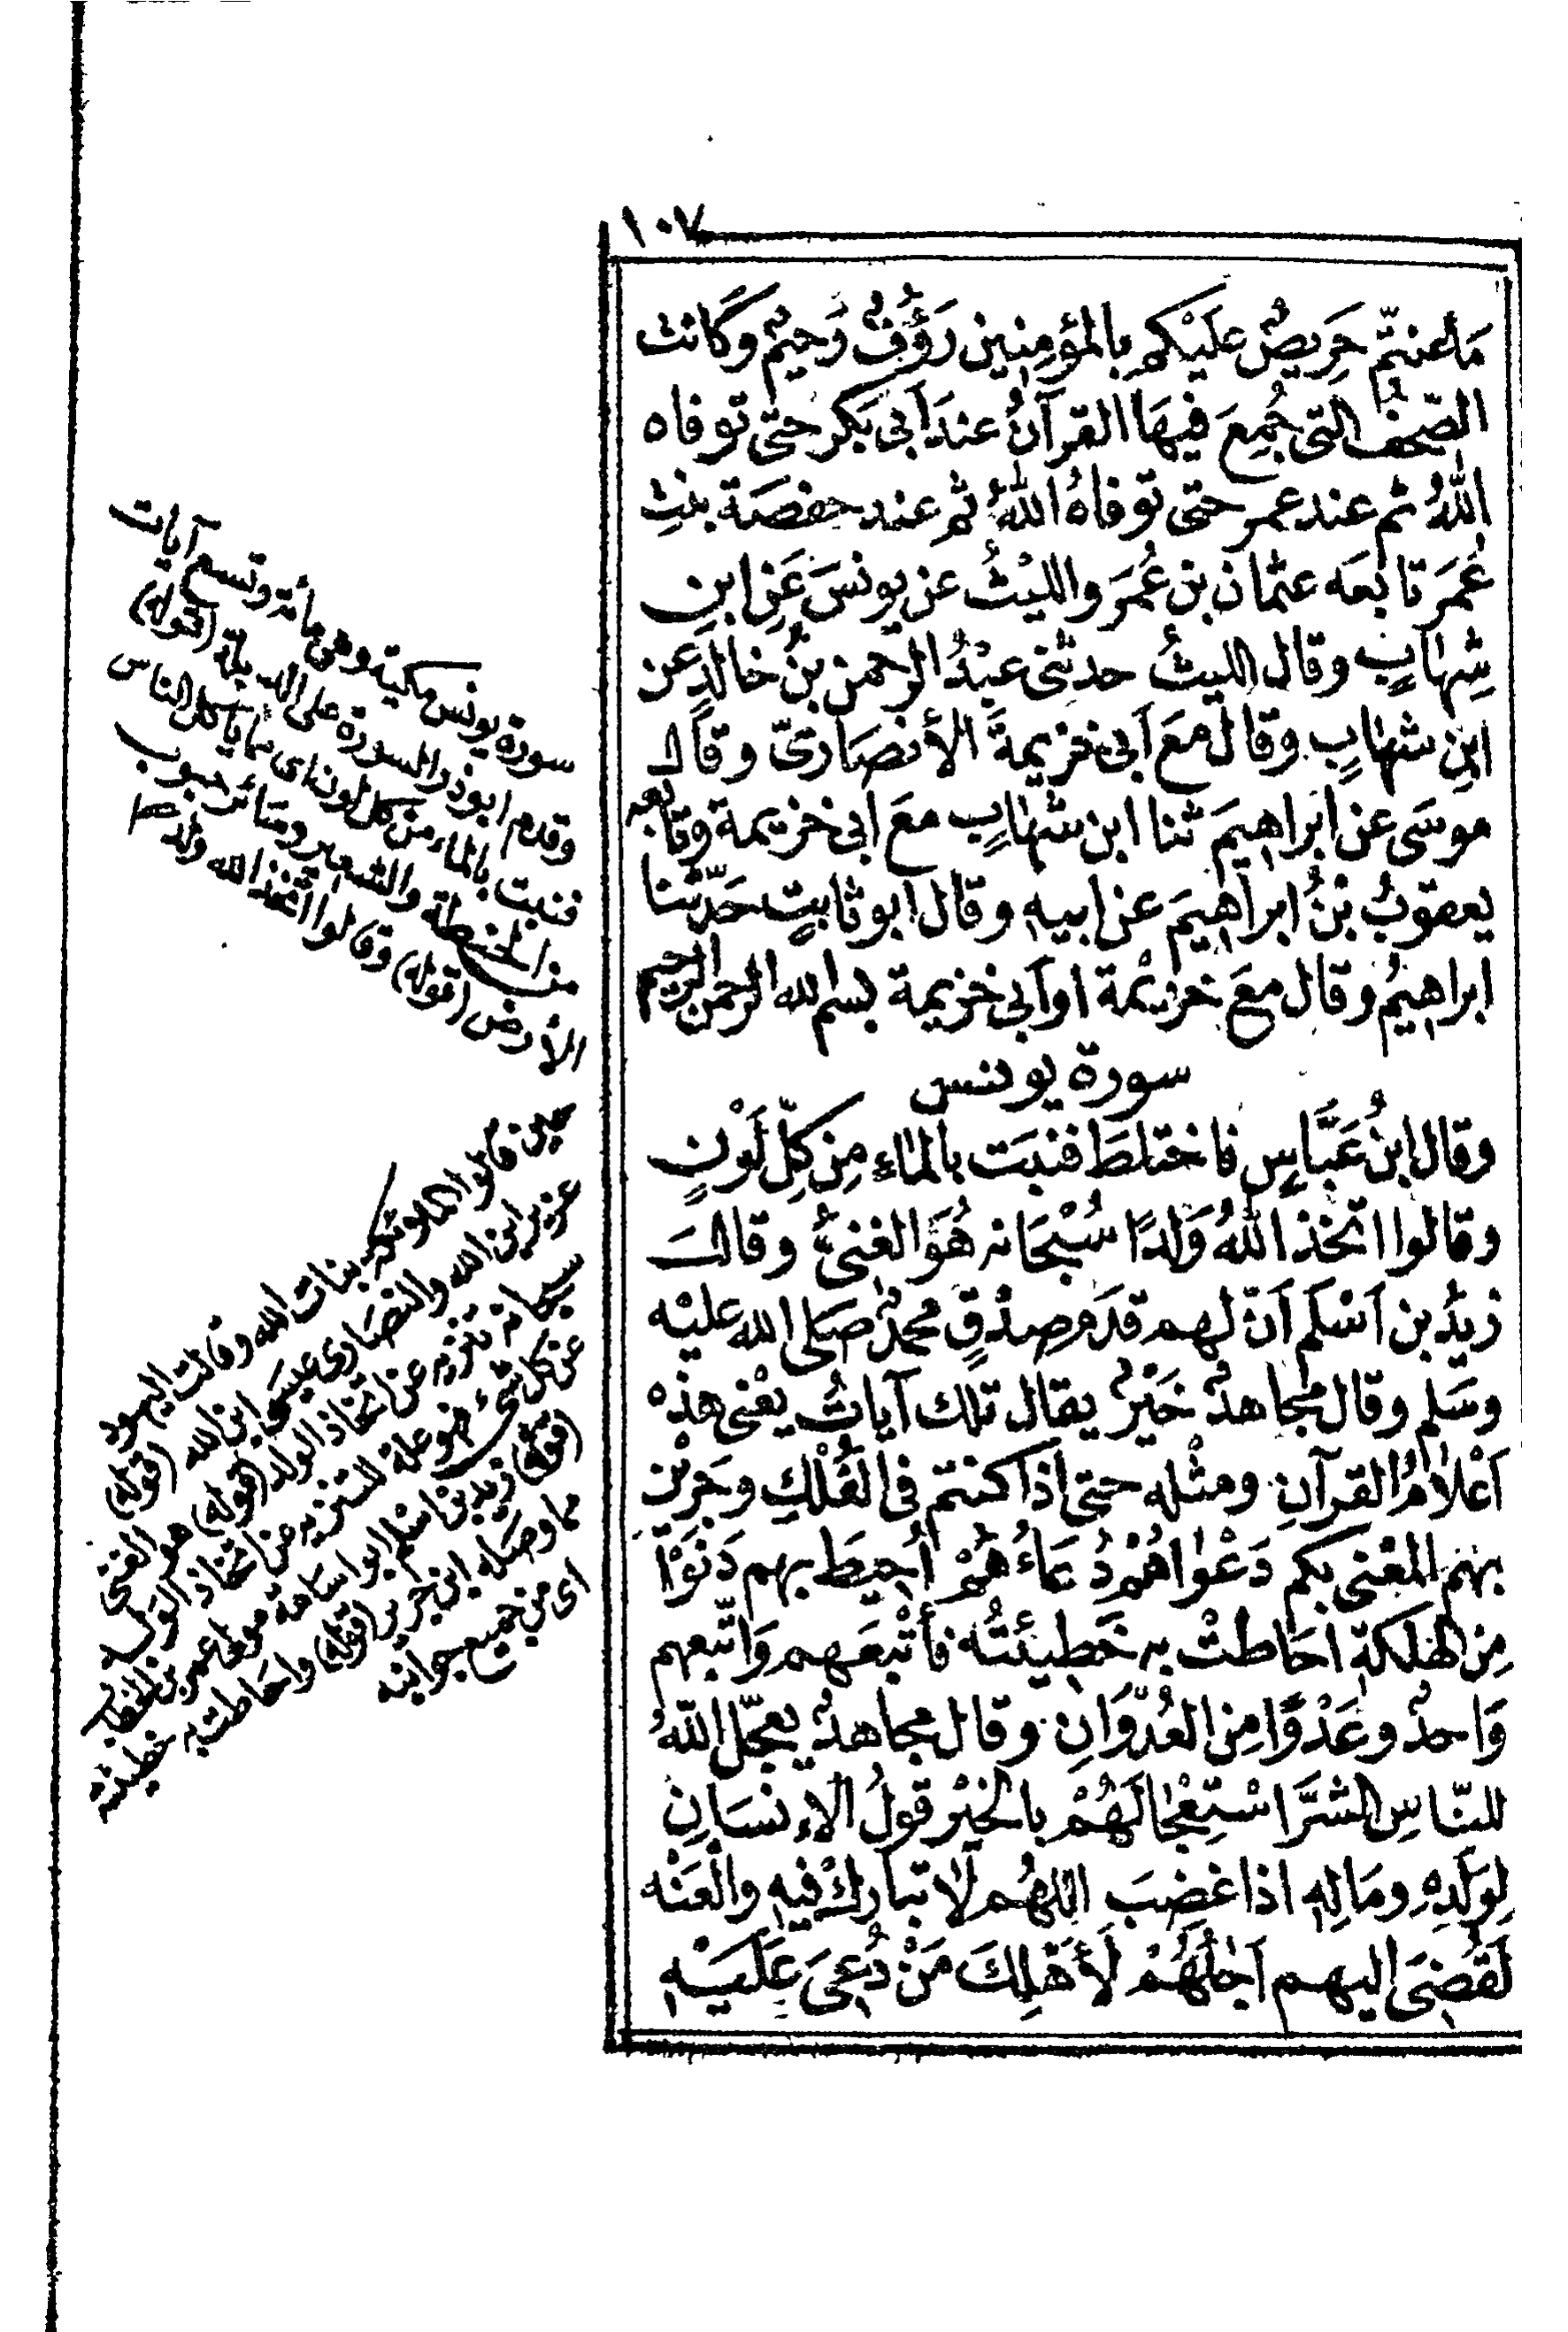 ١٠٧
مَا عنتّم حَرِيصٌ علَيْكم بالمؤمِنِين رَؤُفٌ رَحيمٌ وكَانت
الصّحفُ التى جُمِعَ فيهَا القرآنُ عندَ أبى بَكر حتى توفاه
اللهُ ثم عند عمر حتى توفاهُ اللهُ ثم عند حفصَة بنتِ
عُمَر تابعَه عثمان بن عُمَرَ والليْثُ عن يونسَ عَنِ ابنِ
شِهَابٍ وقال الليثُ حدثنى عبْدُ الرحمن بنُ خالدٍ عن
ابنِ شهَابٍ وقال معَ أبى خزيمةَ الأنصَارىّ وقال
موسَى عن ابراهيمَ ثنا ابن شهَابٍ معَ ابى خزيمة وتابعه
يعقوبُ بنُ ابراهيمَ عن ابيهِ وقال ابو ثابتٍ حَدّثنا
ابراهيمُ وقال معَ خزيْمة او أبى خزيمة بسم الله الرحمن الرحيم
سورة يونس
وقال ابنُ عَبَّاسٍ فاختلطَ فنبَت بالماءِ مِن كلِّ لَوْنٍ
وقالوا اتخذ اللهُ وَلدًا سُبْحَانه هُوَ الغنىُّ وقالَ
زيدُ بن اَسْلَم اَنّ لهم قدَم صِدْقٍ محمدٌ صَلى الله عليْه
وسَلم وقال مجاهدٌ خَيْرٌ يقال تلك آياتُ يعْنى هذه
اَعْلامُ القرآنِ ومثْله حتى اذا كنتم فى الفُلْكِ وجَرَيْن
بهم المعْنى بكم دَعْوَاهُمْ دُعَاءُهُمْ اُحِيطَ بهم دَنَوْا
مِن الهَلَكَةِ احَاطتْ به خَطِيئتُه فأتْبعَهم وَاتّبعهم
وَاحدٌ وعَدْوًا مِن العُدْوَانِ وقال مجاهدٌ يعجّل اللهُ
للنّاسِ الشرَّ اسْتِعْجَالَهُمْ بالخيْر قولُ الإنسَانِ
لِوَلَدِهِ ومَالِهِ اذا غضِبَ اللهُم لا تباركْ فيهِ والْعَنْه
لَقُضِىَ اليهم اَجَلُهُمْ لَأُهْلِكَ مَنْ دُعِىَ عَلَيْهِ
سورة يونس مكية وهى مائة وتسع آيات
وقدم ابو ذر السورة على البسملة (قوله)
فنبت بالماء من كل لون اى مما ياكل الناس
من الحنطة والشعير وسائر حبوب
الأرض (قوله) وقالوا اتخذ الله ولدا
حين قالوا الملائكة بنات الله وقالت اليهود
عزير ابن الله والنصارى عيسى ابن الله (قوله)
سبحانه تنزيه عن اتخاذ الولد (قوله) هو الغنى
عن كل شىء فهو علة للتنزيه عن اتخاذ الولد
(قوله) زيد بن اسلم ابو اسامة مولى عمر بن الخطاب
مما وصله ابن جرير (قوله) واحاطت به خطيئته
اى من جميع جوانبه